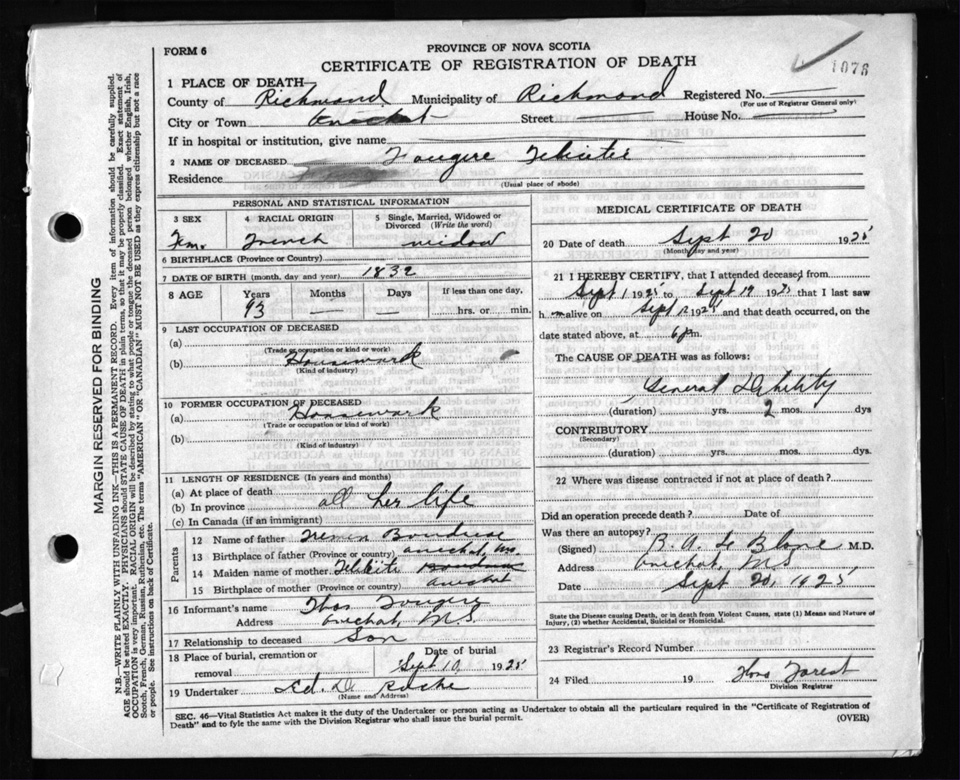 PROVINCE OF NOVA SCOTIA
FORM 6
CERTIFICATE OF REGISTRATION OF DEATH
1076
1 PLACE OF DEATH—
County of Richmond Municipality of Richmond Registered No.
(For use of Registrar General only)
City or Town Street House No.
If in hospital or institution, give name
2 NAME OF DECEASED Fougere Felicitee
Residence
(Usual place of abode)
PERSONAL AND STATISTICAL INFORMATION
3 SEX
4 RACIAL ORIGIN
5 Single, Married, Widowed or Divorced (Write the word)
Fem. French widow
6 BIRTHPLACE (Province or Country)
7 DATE OF BIRTH (month, day and year) 1832
8 AGE Years Months Days If less than one day,
93 hrs. or min.
9 LAST OCCUPATION OF DECEASED
(a)
(Trade or occupation or kind of work)
(b) Housework
(Kind of industry)
10 FORMER OCCUPATION OF DECEASED
(a) Housework
(Trade or occupation or kind of work)
(b)
(Kind of industry)
11 LENGTH OF RESIDENCE (In years and months)
(a) At place of death
(b) In province all her life
(c) In Canada (if an immigrant)
Parents
12 Name of father
13 Birthplace of father (Province or country)
14 Maiden name of mother
15 Birthplace of mother (Province or country)
16 Informant's name Thos Fougere
Address Arichat, N.S.
17 Relationship to deceased Son
18 Place of burial, cremation or removal
Date of burial
Sept 1925
19 Undertaker
(Name and Address)
MEDICAL CERTIFICATE OF DEATH
20 Date of death Sept 20 1925
(Month, day and year)
21 I HEREBY CERTIFY, that I attended deceased from
Sept 1 1925 to Sept 19 1925 that I last saw
h m alive on Sept 1925 and that death occurred, on the
date stated above, at 6 p.m.
The CAUSE OF DEATH was as follows:
General Debility
(duration) yrs. 2 mos. dys
CONTRIBUTORY
(Secondary)
(duration) yrs. mos. dys.
22 Where was disease contracted if not at place of death?
Did an operation precede death? Date of
Was there an autopsy?
(Signed) B. A. Le Blanc M.D.
Address Arichat, N.S.
Date Sept 20, 1925
State the Disease causing Death, or in death from Violent Causes, state (1) Means and Nature of Injury, (2) whether Accidental, Suicidal or Homicidal.
23 Registrar's Record Number
24 Filed 19
Division Registrar
SEC. 46—Vital Statistics Act makes it the duty of the Undertaker or person acting as Undertaker to obtain all the particulars required in the "Certificate of Registration of
Death" and to fyle the same with the Division Registrar who shall issue the burial permit.
(OVER)
MARGIN RESERVED FOR BINDING
N.B.—WRITE PLAINLY WITH UNFADING INK—THIS IS A PERMANENT RECORD. Every item of information should be carefully supplied.
AGE should be stated EXACTLY. PHYSICIANS should STATE CAUSE OF DEATH in plain terms, so that it may be properly classified. Exact statement of
OCCUPATION is very important. RACIAL ORIGIN will be described by stating to what people or tongue the deceased person belonged whether English, Irish,
Scotch, French, German, Russian, Ruthenian, etc. The terms "AMERICAN" OR "CANADIAN" MUST NOT BE USED as they express citizenship but not a race
or people. See instructions on back of Certificate.